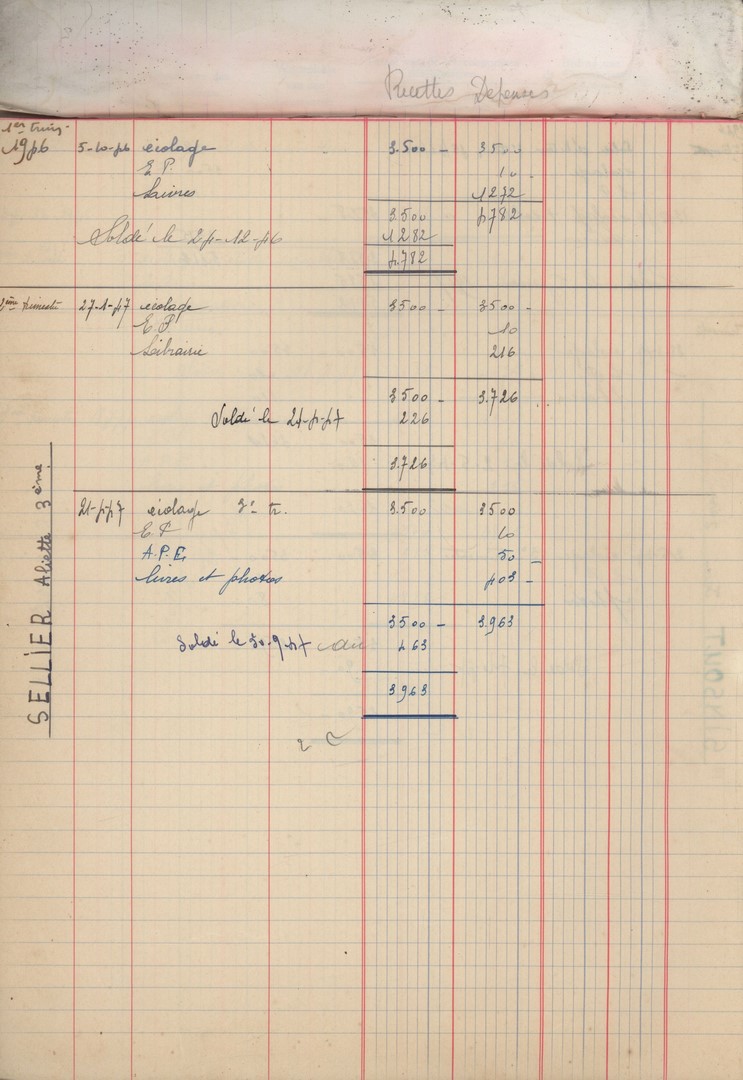 Recettes Depenses
1er trim.
1946 5-10-46 écolage 3.500 - 3500
E P. 10 -
Livres 1272
3500 4782
Soldé le 24-12-46 1282
4.782
2ème trimestre 27-1-47 écolage 3500 - 3500 -
E. P. 10
Librairie 216
3500 - 3.726
Soldé le 24-4-47 226
3.726
21-4-47 écolage 3e tr. 3.500 3500
E P 10
A.P.E. 50
livres et photos 403 -
3500 - 3.963
Soldé le 30-9-47 463
3963
SELLIER Aliette 3ème